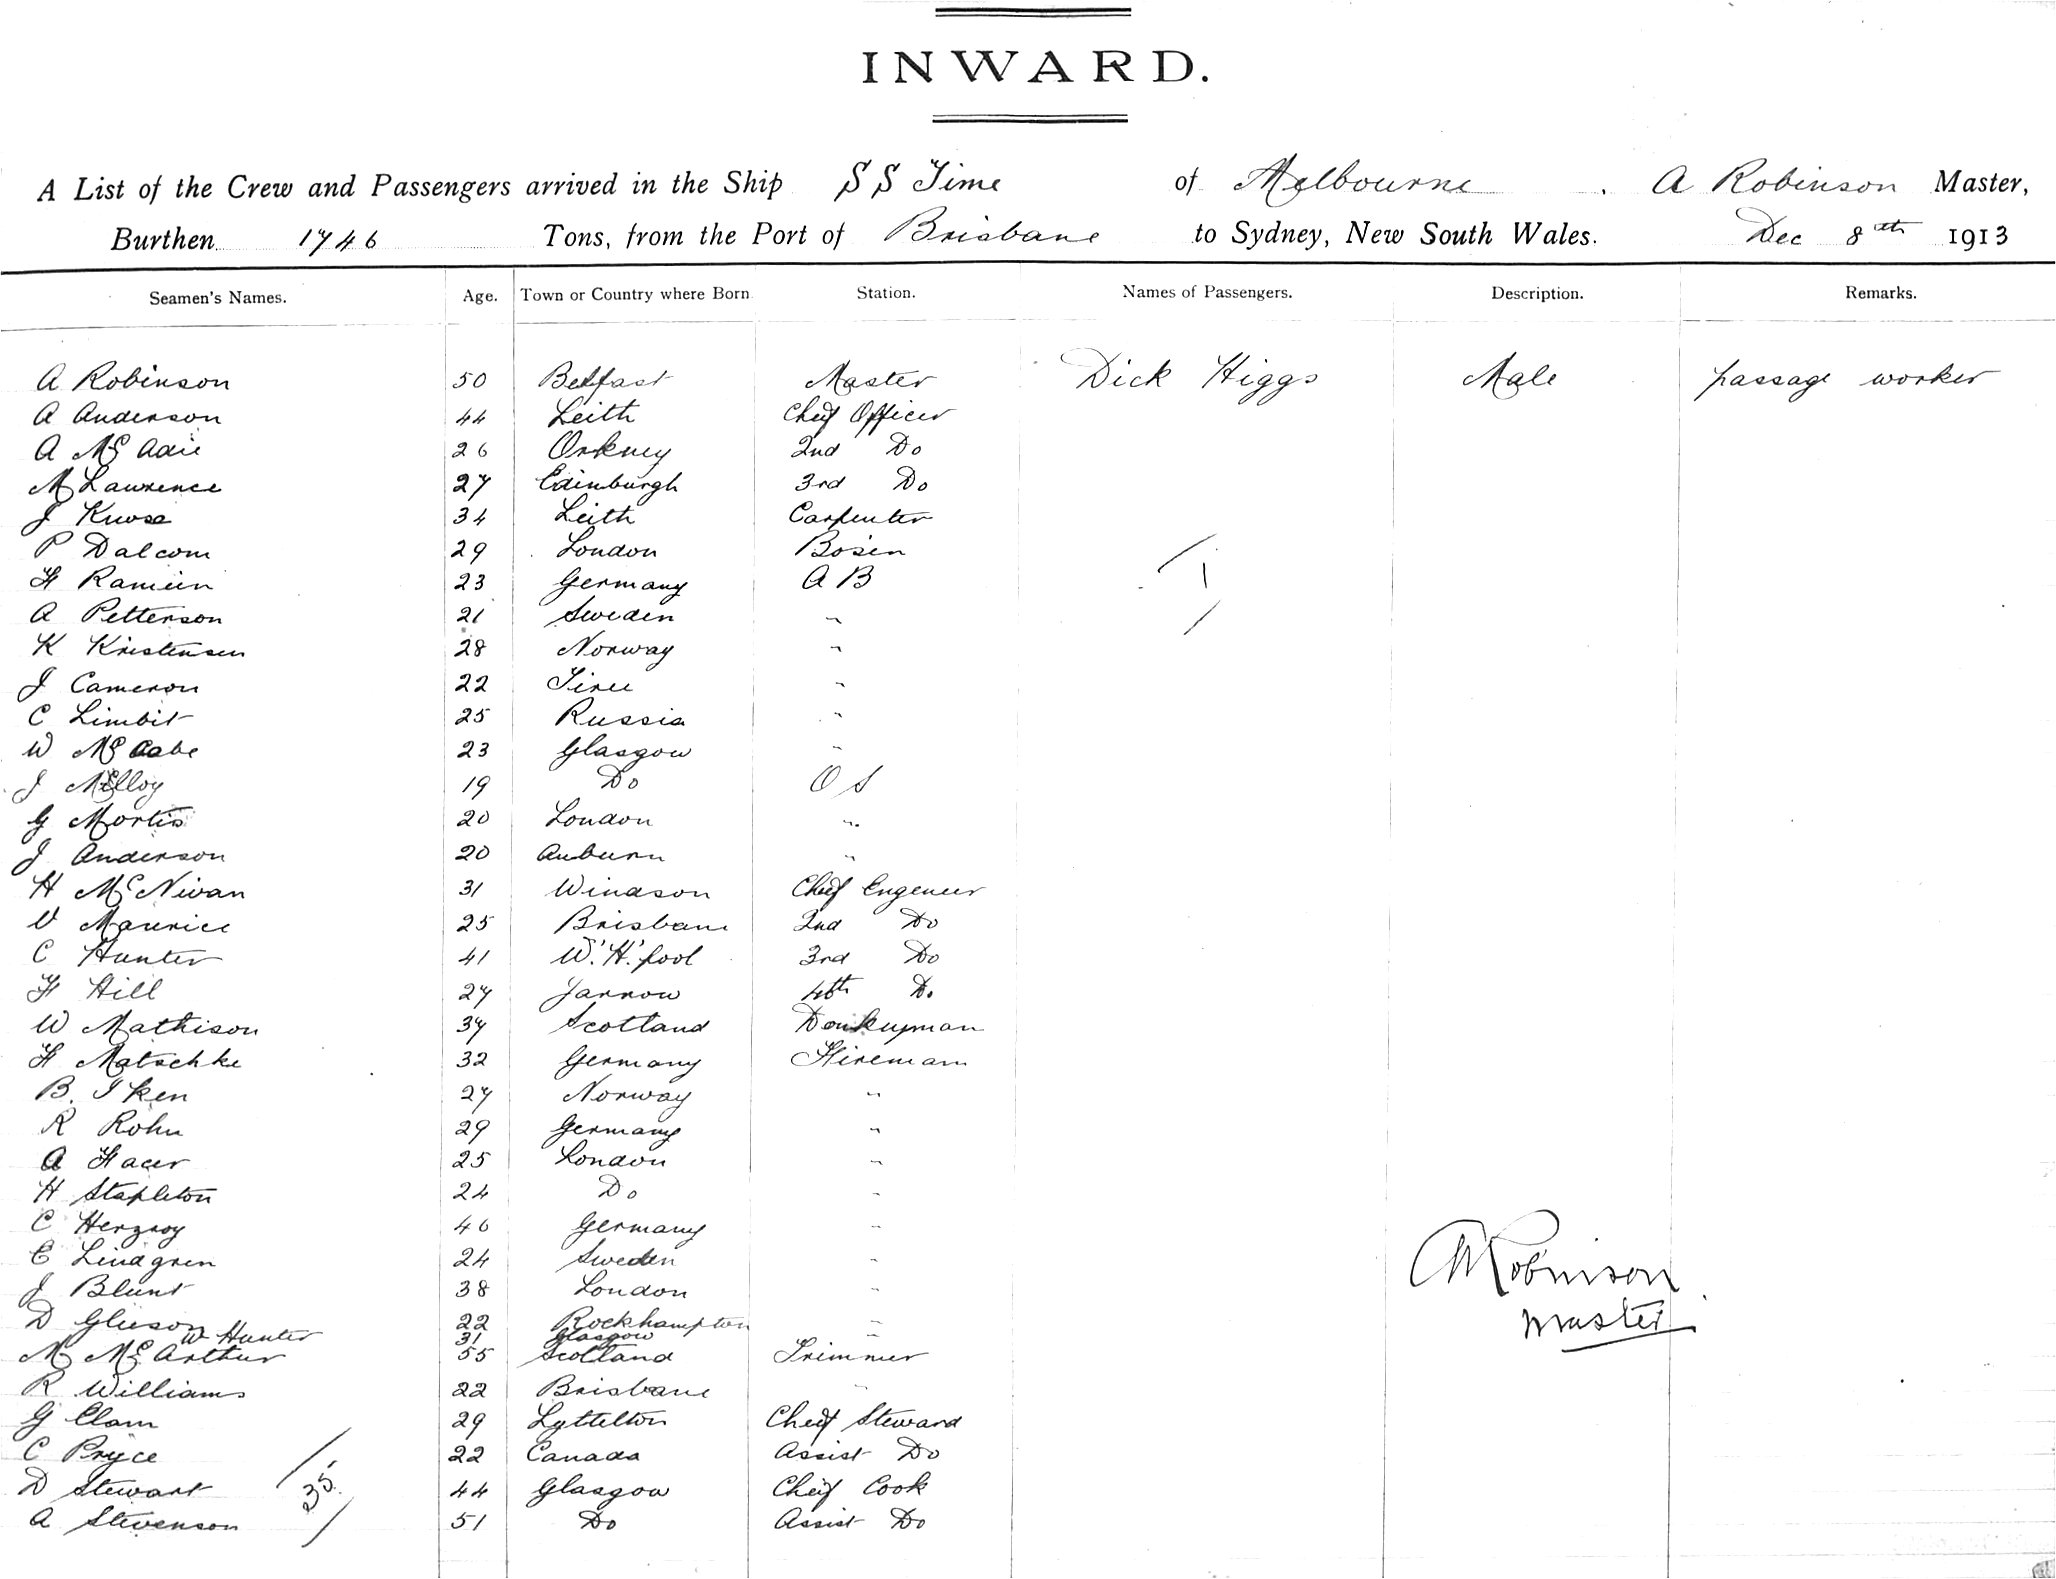 INWARD.
A List of the Crew and Passengers arrived in the Ship S S Time of Melbourne . A Robinson Master,
Burthen 1746 Tons, from the Port of Brisbane to Sydney, New South Wales. Dec 8th 1913
Seamen's Names. Age. Town or Country where Born Station. Names of Passengers. Description. Remarks.
A Robinson 50 Belfast Master Dick Higgs Male passage worker
A Anderson 44 Leith Cheif Officer
A Mc Adie 26 Orkney 2nd Do
M Lawrence 27 Edinburgh 3rd Do
J Kruse 34 Leith Carpenter
P Dalcom 29 London Bosen
F Ramein 23 Germany A B
A Petterson 21 Sweden "
K Kristensen 28 Norway "
J Cameron 22 Tiree "
C Limbit 25 Russia "
W Mc Cabe 23 Glasgow "
J 19 Do O S
G Mortis 20 London "
J Anderson 20 Auburn "
H Mc Nivan 31 Windsor Cheif Engeneer
V Maurice 25 Brisbane 2nd Do
C Hunter 41 W. H. pool 3rd Do
F Hill 27 Jarrow 4th Do
W Mathison 37 Scotland Donkeyman
F Matschke 32 Germany Fireman
B. Iken 27 Norway "
R Rohn 29 Germany "
A Facer 25 London "
H Stapleton 24 Do "
C Herzog 46 Germany "
E Lindgren 24 Sweden "
J Blunt 38 London "
D Gleeson 22 Rockhampton "
W Hunter 31 Glasgow "
M Mc Arthur 55 Scotland Trimmer
R Williams 22 Brisbane "
G Clam 29 Lyttelton Cheif Steward
C Pryce 22 Canada Assist Do
D Stewart 44 Glasgow Cheif Cook
A Stevenson 51 Do Assist Do
35
1
A Robinson
Master